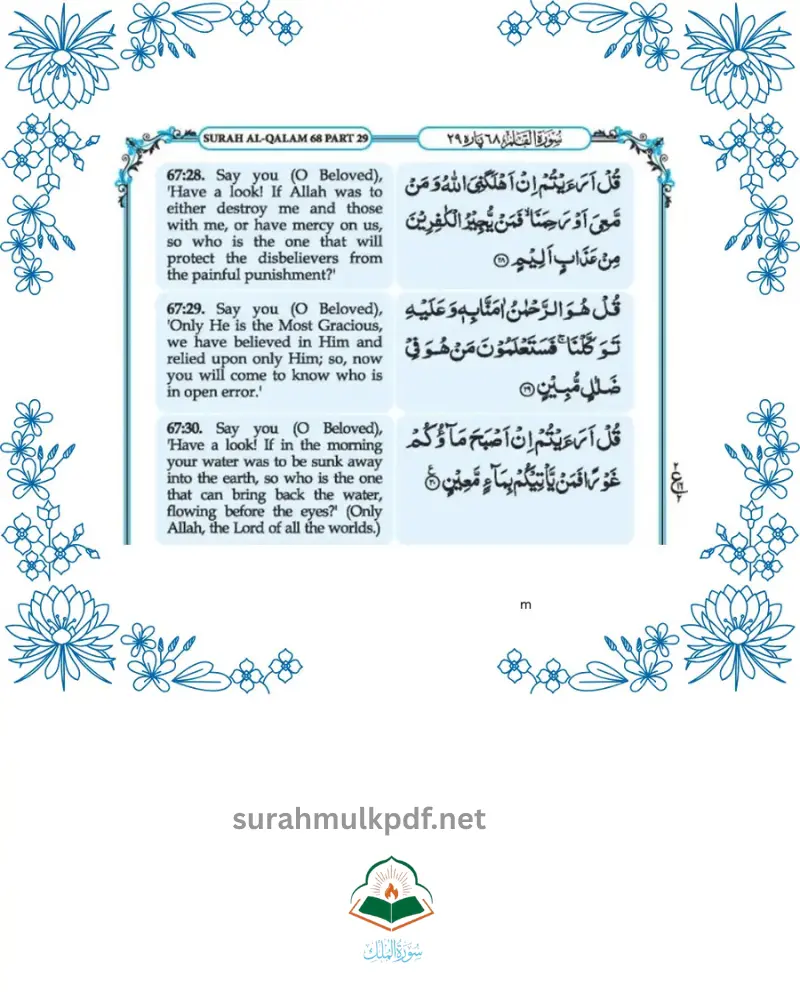 SURAH AL-QALAM 68 PART 29
سُوْرَةُ الْقَلَمِ ٦٨ پَارَہ ٢٩
67:28. Say you (O Beloved),
'Have a look! If Allah was to
either destroy me and those
with me, or have mercy on us,
so who is the one that will
protect the disbelievers from
the painful punishment?'
قُلْ اَرَءَيْتُمْ اِنْ اَهْلَكَنِیَ اللّٰهُ وَ مَنْ
مَّعِیَ اَوْ رَحِمَنَا ۙ فَمَنْ يُّجِيْرُ الْكٰفِرِيْنَ
مِنْ عَذَابٍ اَلِيْمٍ ﴿٢٨﴾
67:29. Say you (O Beloved),
'Only He is the Most Gracious,
we have believed in Him and
relied upon only Him; so, now
you will come to know who is
in open error.'
قُلْ هُوَ الرَّحْمٰنُ اٰمَنَّا بِهٖ وَ عَلَيْهِ
تَوَكَّلْنَا ۚ فَسَتَعْلَمُوْنَ مَنْ هُوَ فِیْ
ضَلٰلٍ مُّبِيْنٍ ﴿٢٩﴾
67:30. Say you (O Beloved),
'Have a look! If in the morning
your water was to be sunk away
into the earth, so who is the one
that can bring back the water,
flowing before the eyes?' (Only
Allah, the Lord of all the worlds.)
قُلْ اَرَءَيْتُمْ اِنْ اَصْبَحَ مَآؤُكُمْ
غَوْرًا فَمَنْ يَّاْتِيْكُمْ بِمَآءٍ مَّعِيْنٍ ﴿٣٠﴾
m
surahmulkpdf.net
سُوْرَةُ الْمُلْكِ